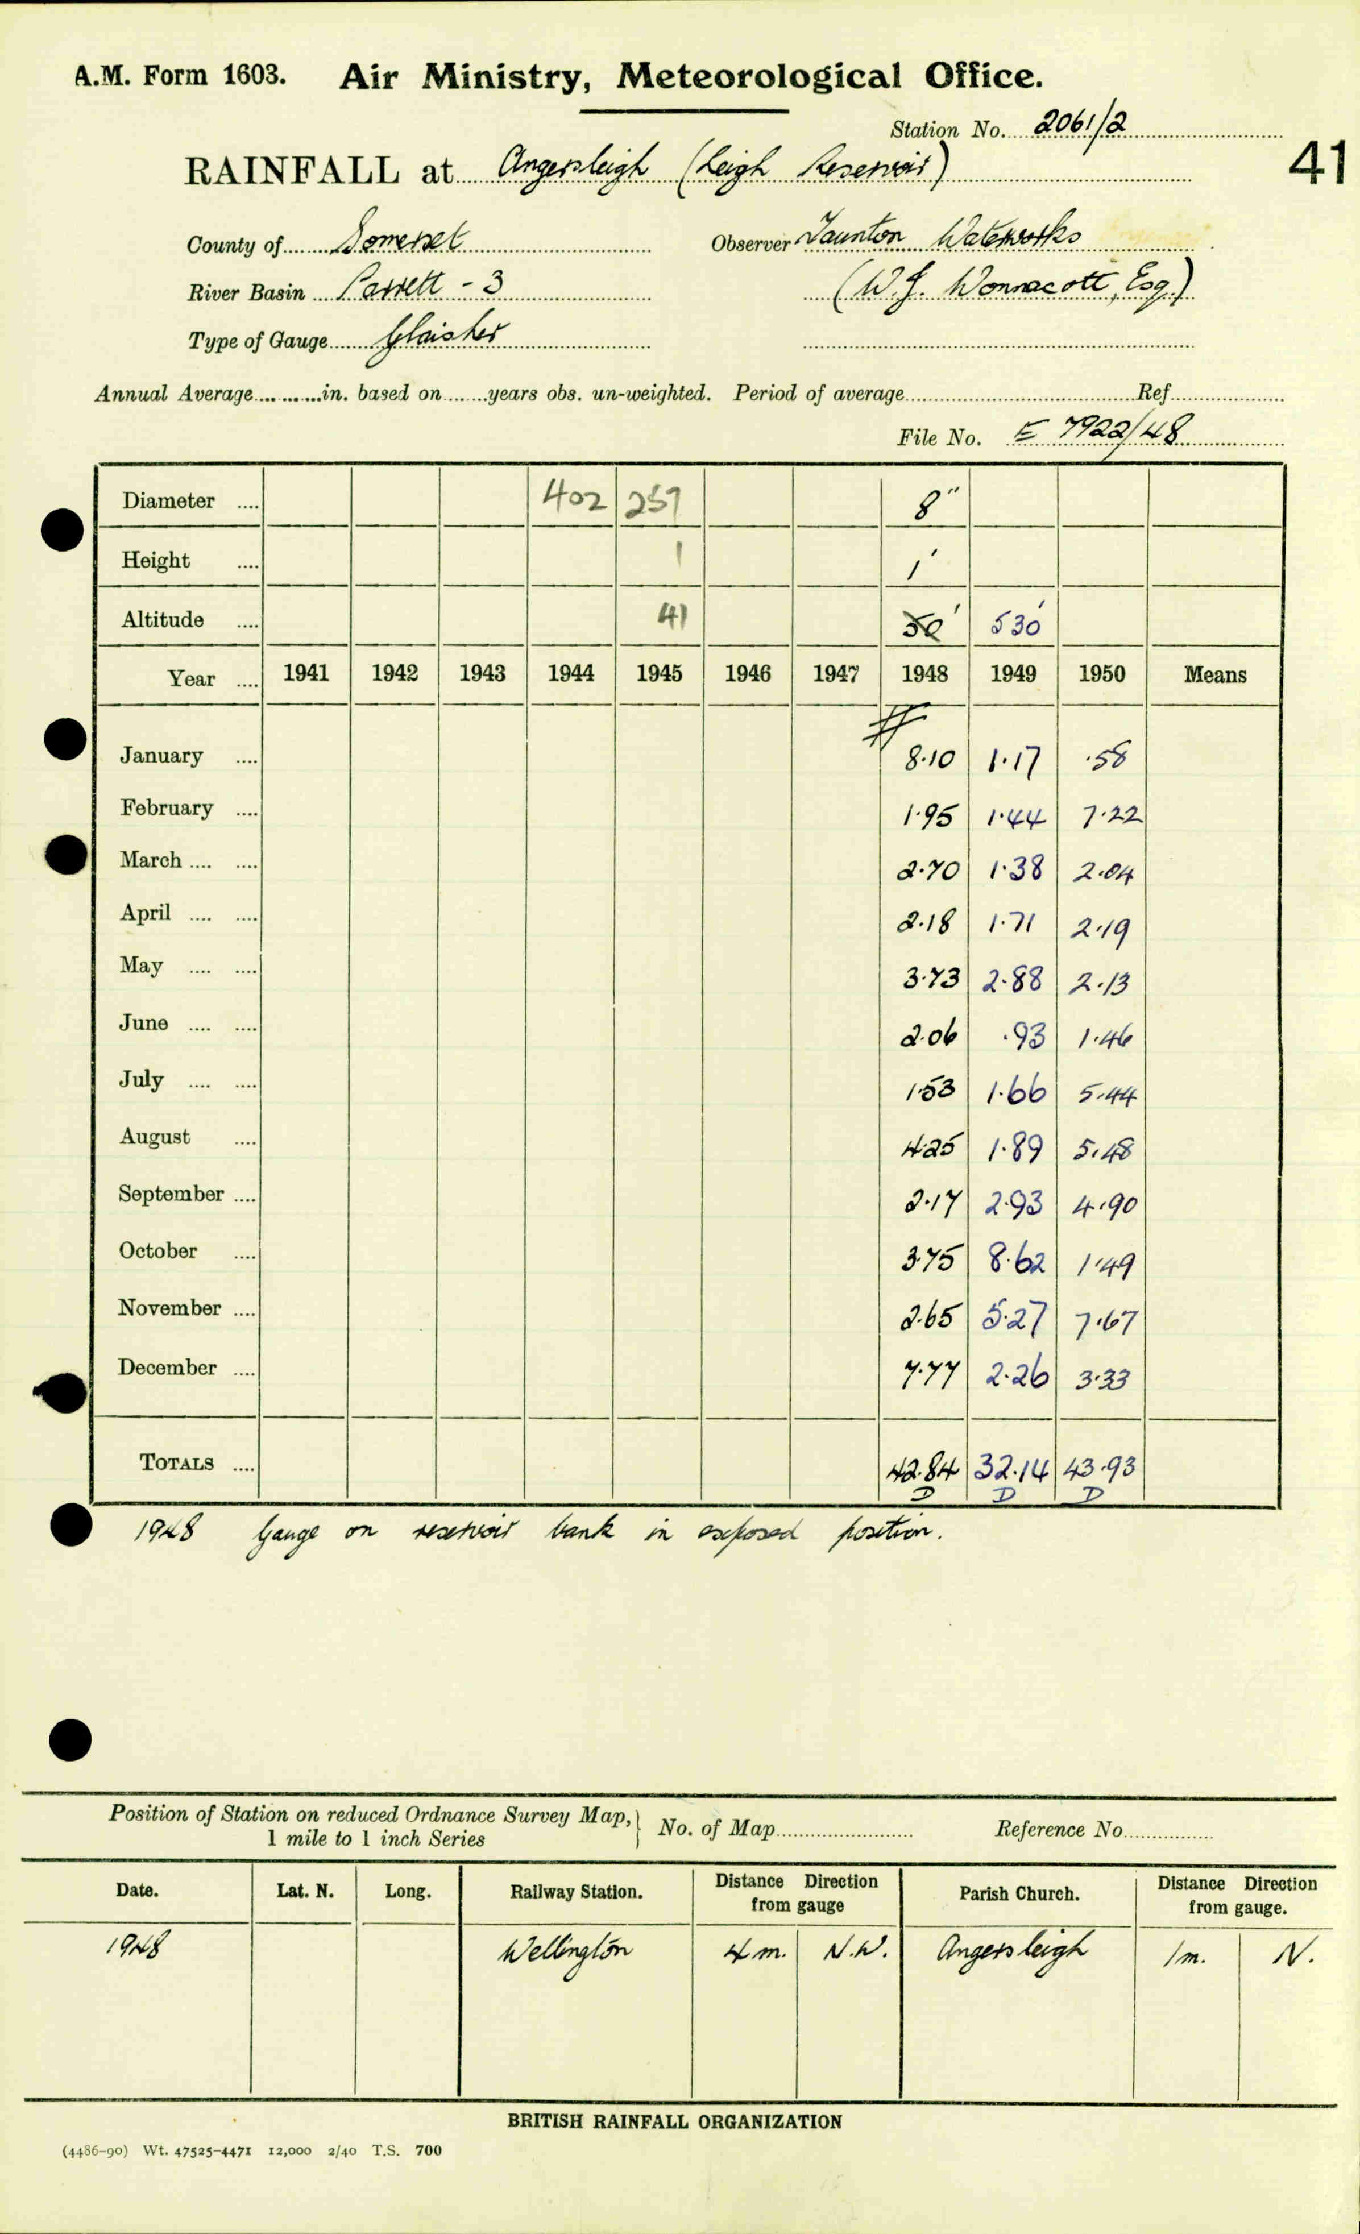 A.M. Form 1603. Air Ministry, Meteorological Office.
Station No. 2061/2
41
RAINFALL at Angersleigh (Leigh Reservoir)
County of Somerset Observer Taunton Waterworks
River Basin Parrett - 3 (W.J. Wonnacott, Esq.)
Type of Gauge Glaisher
Annual Average in. based on years obs. un-weighted. Period of average Ref
File No. E 7922/48
Diameter 402 257 8"
Height 1 1'
Altitude 41 50' 530'
Year 1941 1942 1943 1944 1945 1946 1947 1948 1949 1950 Means
#
January 8.10 1.17 .58
February 1.95 1.44 7.22
March 2.70 1.38 2.04
April 2.18 1.71 2.19
May 3.73 2.88 2.13
June 2.06 .93 1.46
July 1.53 1.66 5.44
August 4.25 1.89 5.48
September 2.17 2.93 4.90
October 3.75 8.62 1.49
November 2.65 5.27 7.67
December 7.77 2.26 3.33
TOTALS 42.84 32.14 43.93
D D D
1948 Gauge on reservoir bank in exposed position.
Position of Station on reduced Ordnance Survey Map, 1 mile to 1 inch Series } No. of Map Reference No
Date. Lat. N. Long. Railway Station. Distance Direction from gauge Parish Church. Distance Direction from gauge.
1948 Wellington 4 m. N.W. Angersleigh 1 m. N.
BRITISH RAINFALL ORGANIZATION
(4486-90) Wt. 47525-4471 12,000 2/40 T.S. 700